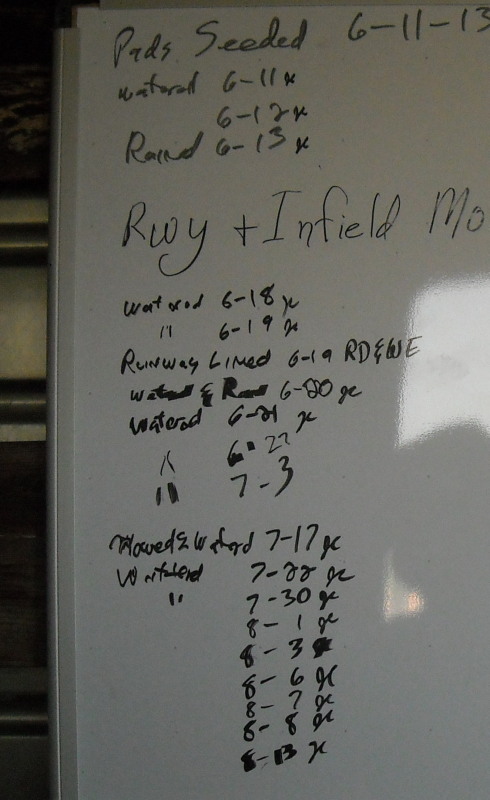 Pads Seeded 6-11-13
watered 6-11 x
6-12 x
Rained 6-13 x
Rwy + Infield Mo
watered 6-18 x
" 6-19 x
Runway Limed 6-19 RD & WE
& 6-20 x
watered 6-21 x
" 6-22
" 7-3
Mowed & watered 7-17 x
Watered 7-22 x
" 7-30 x
8-1 x
8-3 x
8-6 x
8-7 x
8-8 x
8-13 x